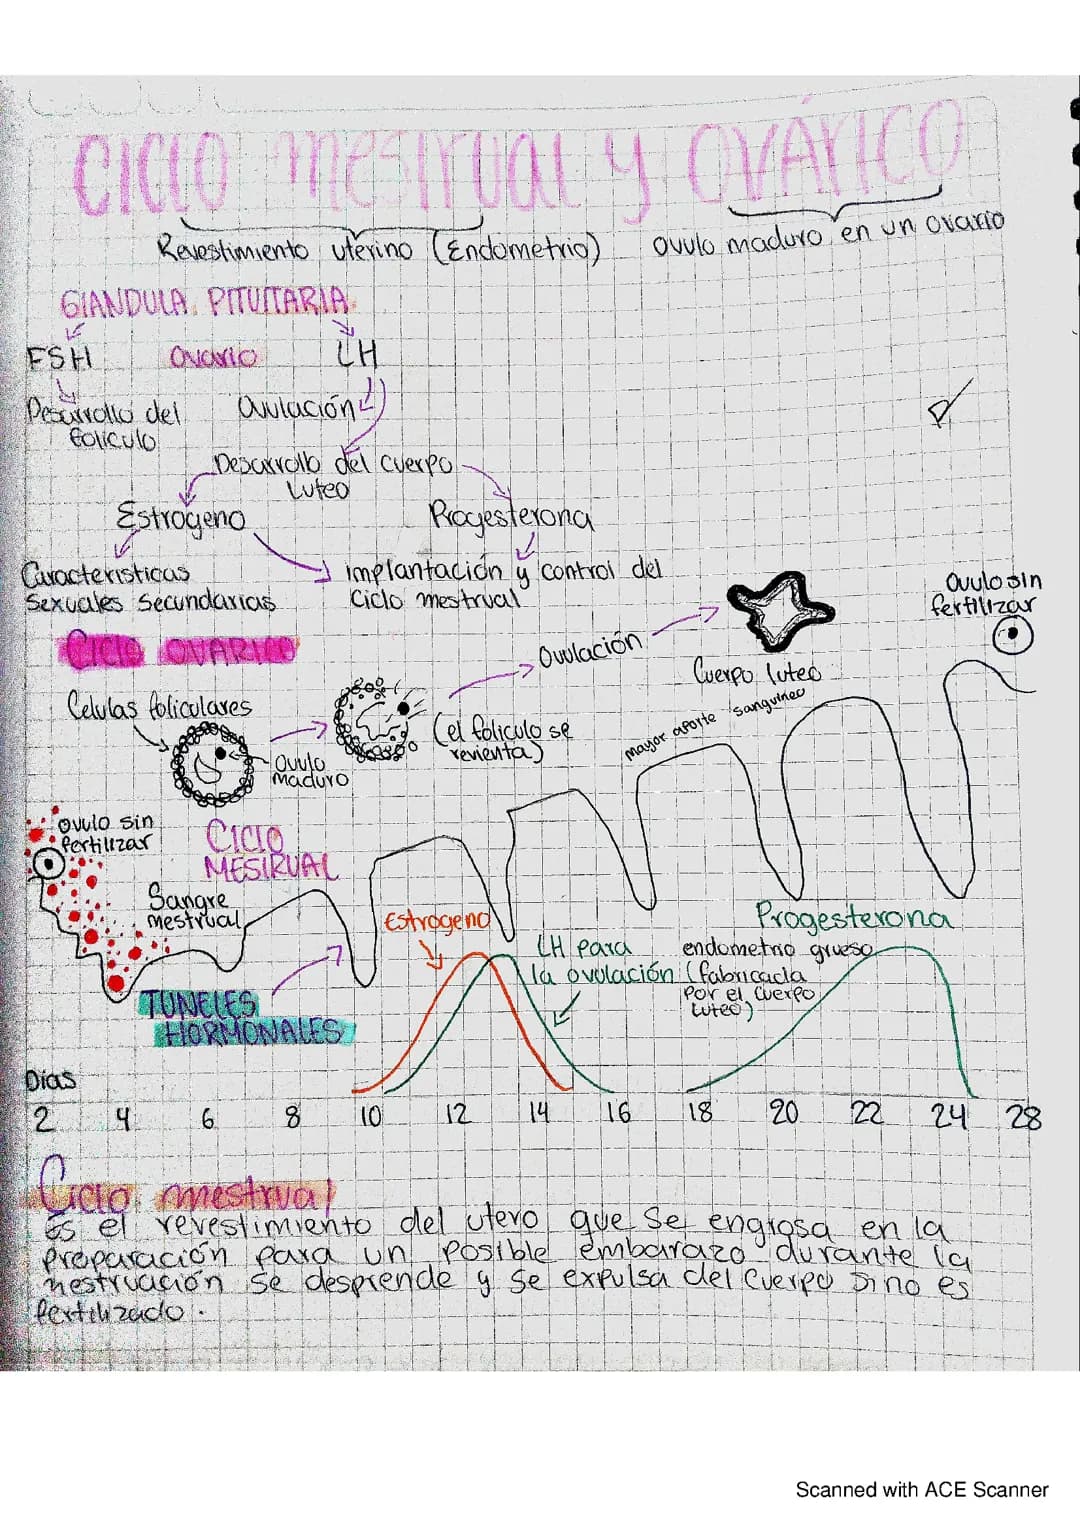 CICLO mestrual y OVÁRICO
Revestimiento uterino (Endometrio)
ovulo maduro en un ovario
GlANDULA PITUITARIA
FSH Ovario LH
Desarrollo del
foliculo
Ovulación
Desarrollo del cuerpo
Luteo
Estrogeno Progesterona
Caracteristicas
Sexuales Secundarias
implantación y control del
Ciclo mestrual
Ovulo sin
fertilizar
CICLO OVARICO
Ovulación
Cuerpo luteo
Celulas foliculares
(el foliculo se
revienta)
mayor aporte sanguineo
Ovulo
maduro
ovulo sin
fertilizar
CICLO
MESTRUAL
Sangre
mestrual
Estrogeno
Progesterona
LH para
la ovulación
endometrio grueso
(fabricada
Por el cuerpo
Luteo)
TUNELES
HORMONALES
Dias
2 4 6 8 10 12 14 16 18 20 22 24 28
Ciclo mestrual
Es el revestimiento del utero que se engrosa en la
Preparación para un posible embarazo durante la
mestruación se desprende y se expulsa del cuerpo sino es
fertilizado.
Scanned with ACE Scanner